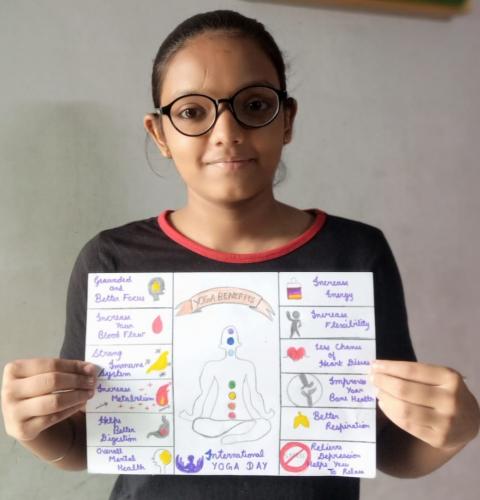 Grounded
and
Better Focus
Increase
Your
Blood Flow
Strong
Immune
System
Increase
Metabolism
Helps
Better
Digestion
Overall
Mental
Health
YOGA BENEFITS
International
YOGA DAY
Increase
Energy
Increase
Flexibility
Less Chance
of
Heart Diseas
Improve
Your
Bone Health
Better
Respiration
Relieve
Depression
Helps You
To Relax